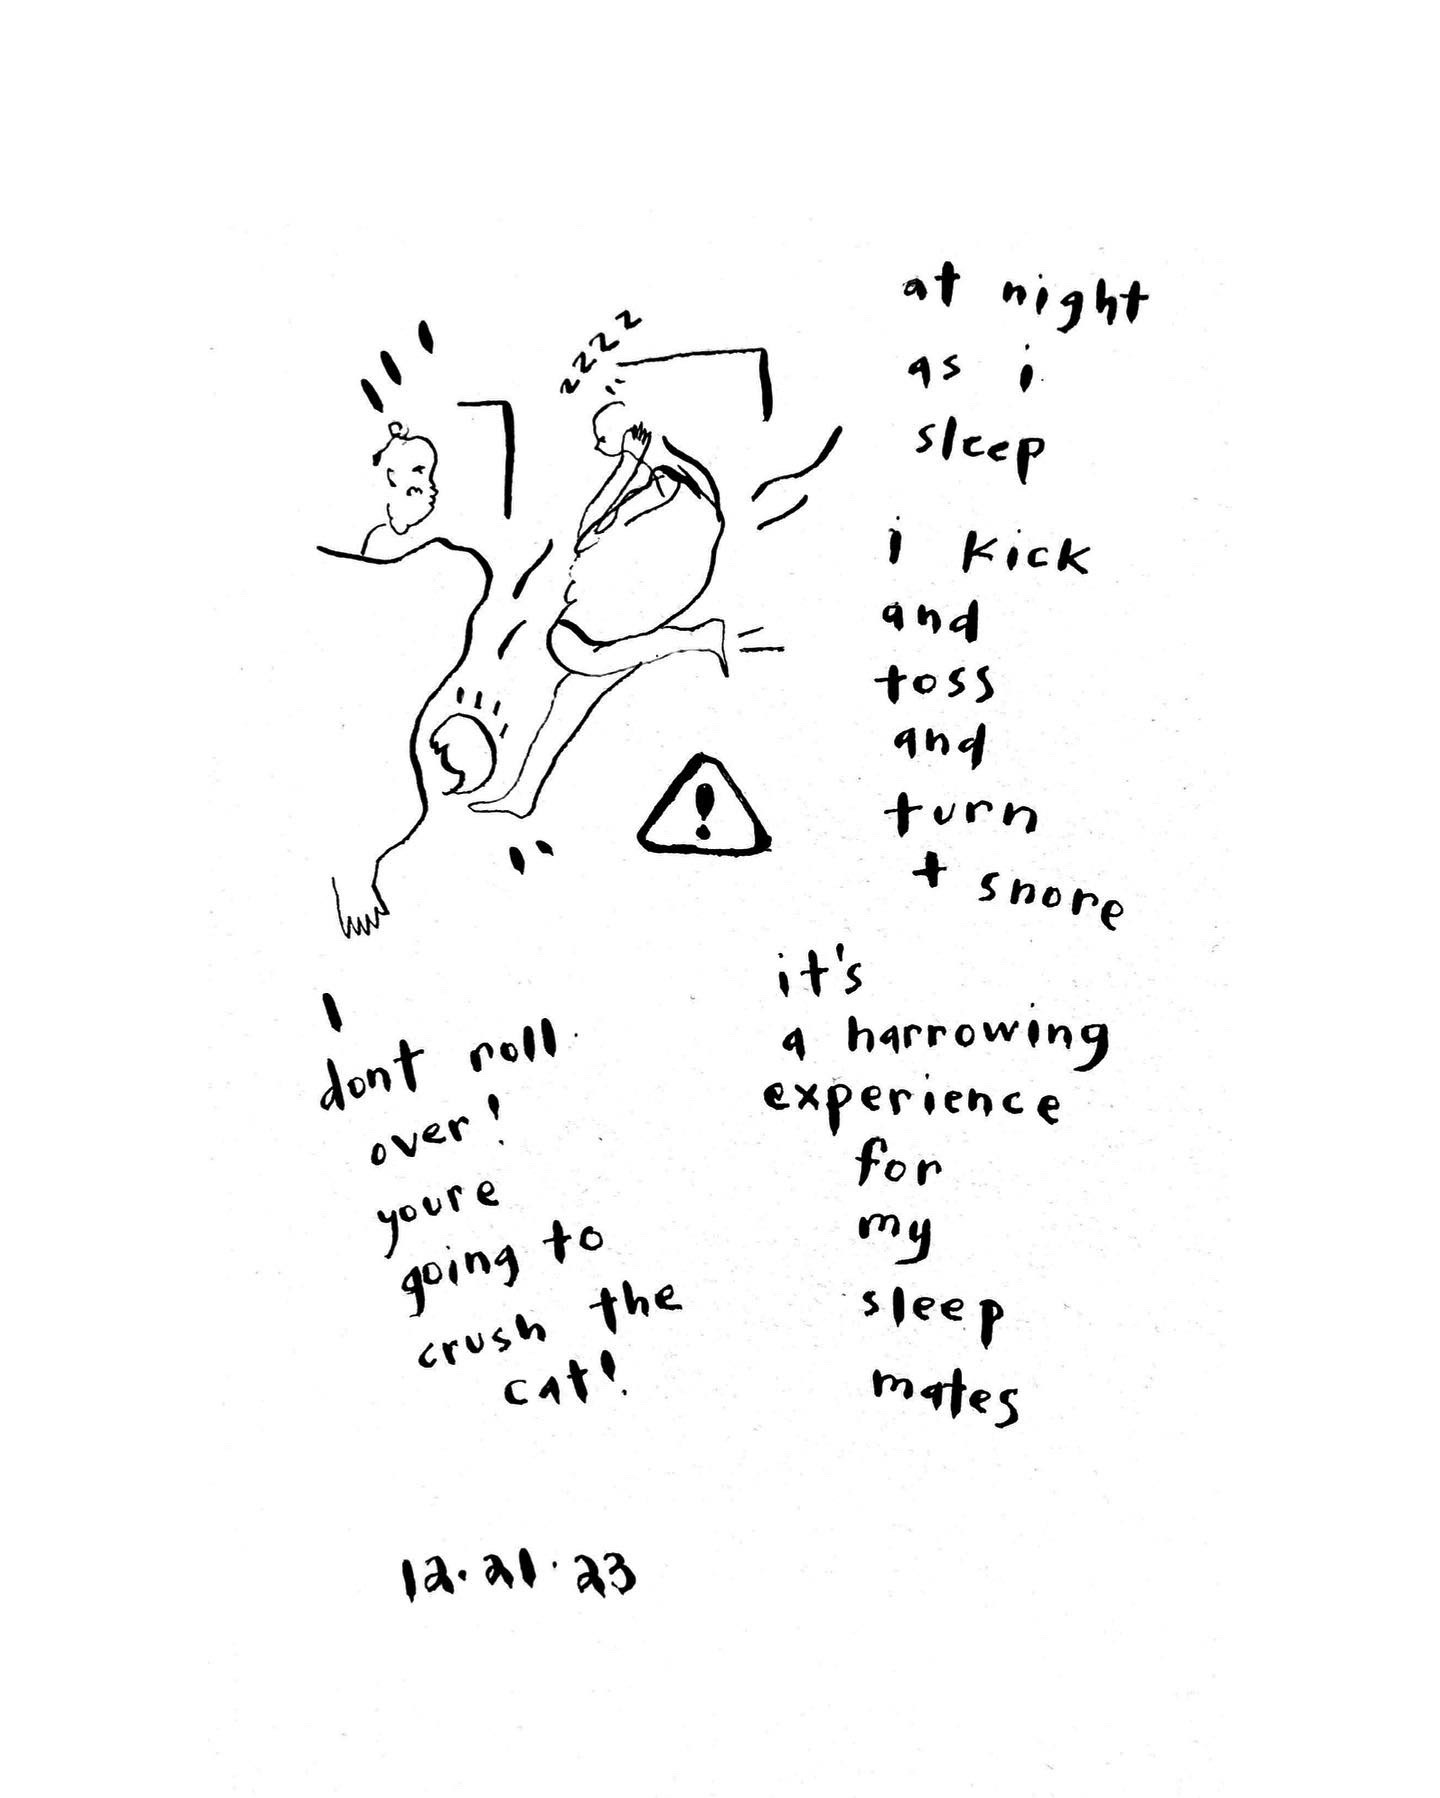 zzzz
at night
as i
sleep
i kick
and
toss
and
turn
+ snore
!
it's
a harrowing
experience
for
my
sleep
mates
dont roll
over!
youre
going to
crush the
cat!
12.21.23